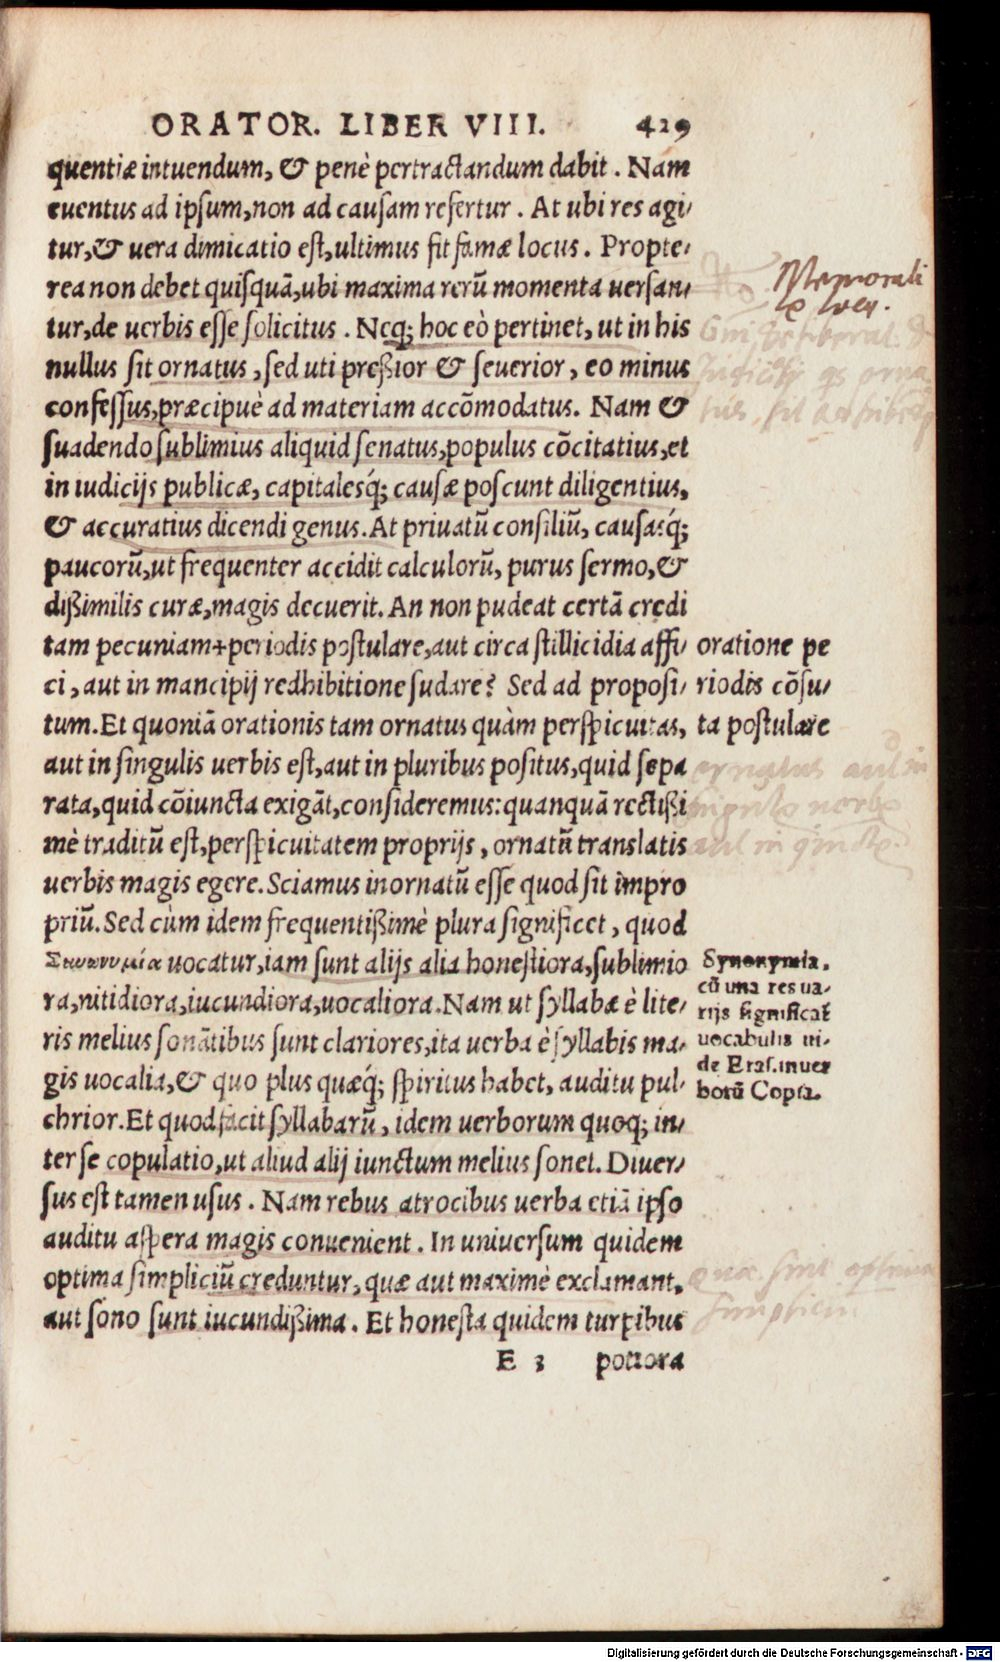 ORATOR. LIBER VIII. 429
quentiæ intuendum, & penè pertractandum dabit. Nam
euentus ad ipsum, non ad causam refertur. At ubi res agi-
tur, & uera dimicatio est, ultimus fit famæ locus. Propte-
rea non debet quisquã, ubi maxima rerũ momenta uersan-
tur, de uerbis esse solicitus. Neq; hoc eò pertinet, ut in his
nullus sit ornatus, sed uti preßior & seuerior, eo minus
confessus, præcipuè ad materiam accõmodatus. Nam &
suadendo sublimius aliquid senatus, populus cõcitatius, et
in iudicijs publicæ, capitalesq́; causæ poscunt diligentius,
& accuratius dicendi genus. At priuatũ consiliũ, causasq́;
paucorũ, ut frequenter accidit calculorũ, purus sermo, &
dißimilis curæ, magis decuerit. An non pudeat certã credi
tam pecuniam+periodis postulare, aut circa stillicidia affi-
ci, aut in mancipij redhibitione sudare? Sed ad proposi-
tum. Et quoniã orationis tam ornatus quàm perspicuitas,
aut in singulis uerbis est, aut in pluribus positus, quid sepa
rata, quid cõiuncta exigãt, consideremus: quanquã rectißi
mè traditũ est, perspicuitatem proprijs, ornatũ translatis
uerbis magis egere. Sciamus inornatũ esse quod sit impro
priũ. Sed cùm idem frequentißimè plura significet, quod
Συνωνυμία uocatur, iam sunt alijs alia honestiora, sublimio
ra, nitidiora, iucundiora, uocaliora. Nam ut syllabæ è lite-
ris melius sonãtibus sunt clariores, ita uerba è syllabis ma-
gis uocalia, & quo plus quæq́; spiritus habet, auditu pul-
chrior. Et quod facit syllabarũ, idem uerborum quoq; in-
ter se copulatio, ut aliud alij iunctum melius sonet. Diuer-
sus est tamen usus. Nam rebus atrocibus uerba etiã ipso
auditu aspera magis conuenient. In uniuersum quidem
optima simpliciũ creduntur, quæ aut maximè exclamant,
aut sono sunt iucundißima. Et honesta quidem turpibus
E 3 potiora
oratione pe
riodis cõsu-
ta postulare
ornatus aut in
singulis uerbis
aut in
Synonymia,
cũ una res ua-
rijs significat̃
uocabulis ui-
de Eras. in uer
borũ Copia.
Quæ sint optima
Digitalisierung gefördert durch die Deutsche Forschungsgemeinschaft - DFG